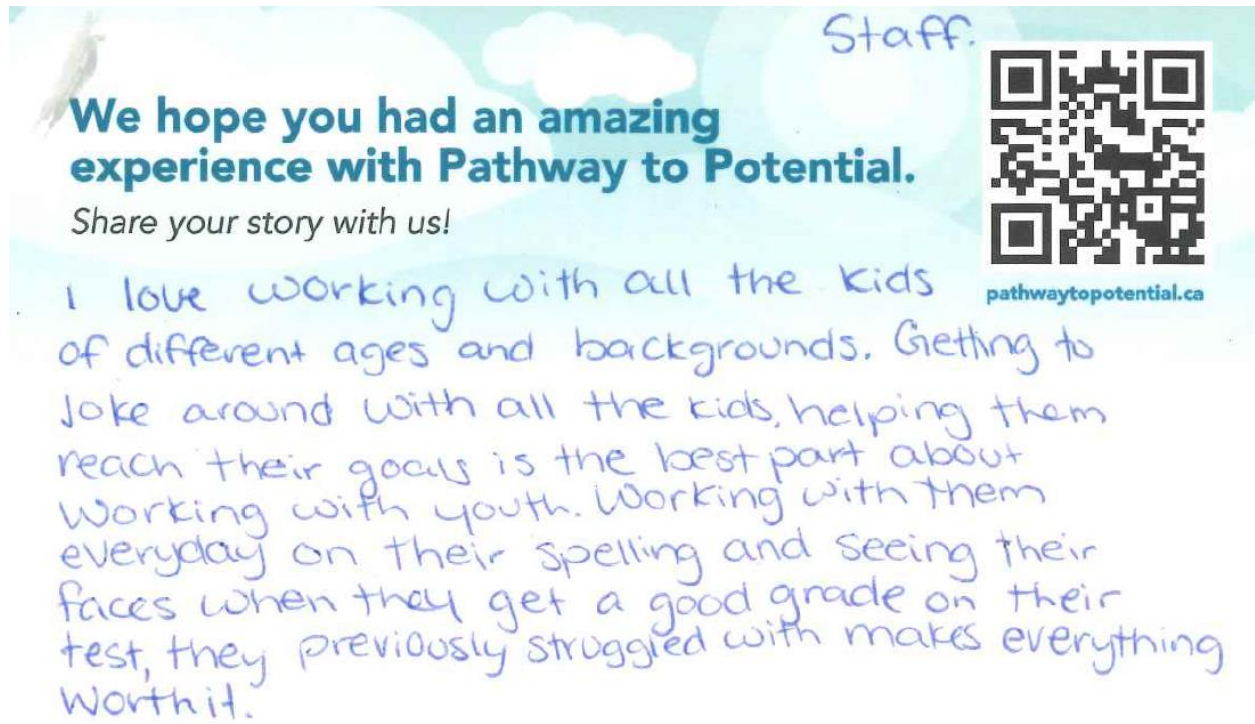 Staff.
We hope you had an amazing
experience with Pathway to Potential.
Share your story with us!
pathwaytopotential.ca
I love working with all the kids
of different ages and backgrounds. Getting to
Joke around with all the kids, helping them
reach their goals is the best part about
working with youth. Working with them
everyday on their spelling and seeing their
faces when they get a good grade on their
test, they previously struggled with makes everything
worth it.